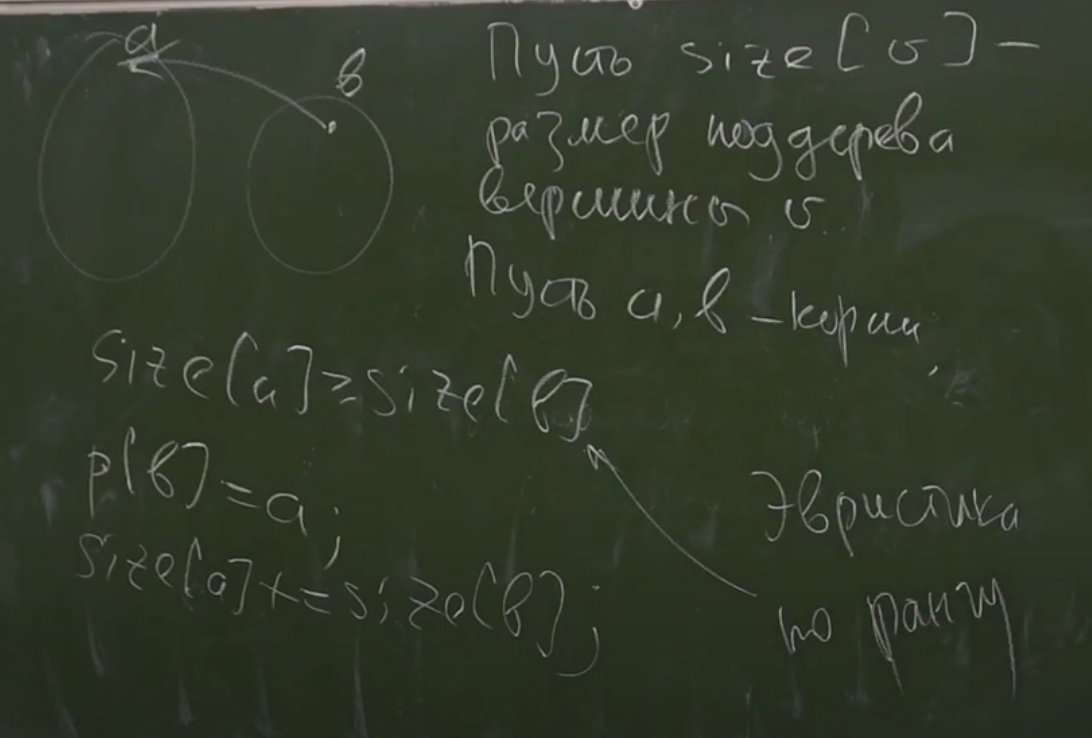 a
b
Пусть size[v] —
размер поддерева
вершины v
Пусть a, b — корни,
size[a] ≥ size[b]
p[b] = a;
size[a] += size[b];
Эвристика
по рангу